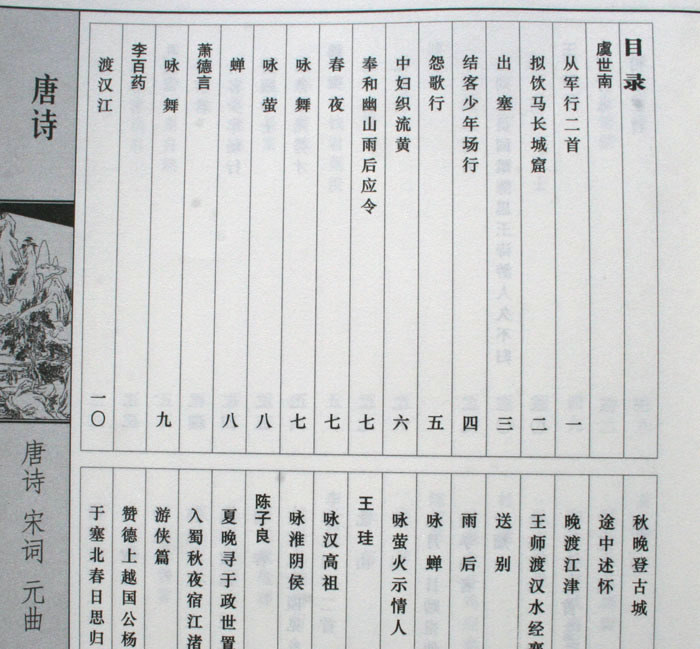 目录
虞世南
从军行二首 一
拟饮马长城窟 二
出塞 三
结客少年场行 四
怨歌行 五
中妇织流黄 六
奉和幽山雨后应令 七
春夜 七
咏舞 七
咏萤 八
蝉 八
萧德言
咏舞 九
李百药
渡汉江 一〇
秋晚登古城
途中述怀
晚渡江津
王师渡汉水经襄
送别
雨后
咏蝉
咏萤火示情人
王珪
咏汉高祖
咏淮阴侯
陈子良
夏晚寻于政世置
入蜀秋夜宿江渚
游侠篇
赞德上越国公杨
于塞北春日思归
唐诗
唐诗 宋词 元曲